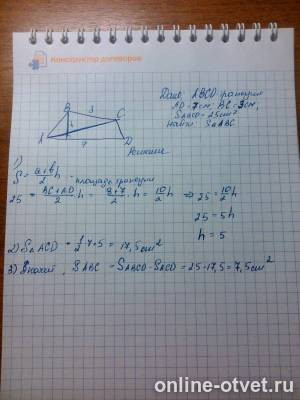 Конструктор договоров
Дано: ABCD трапеция
AD = 7см, BC = 3см,
SABCD = 25см²
Найти: SΔABC
B 3 C
h
A 7 D
Решение
1)
S = a+b/2 h - площадь трапеции
25 = BC+AD/2 h = 3+7/2 h = 10/2 h ⇒ 25 = 10/2 h
25 = 5h
h = 5
2) SΔACD = 1/2 · 7 · 5 = 17,5см²
3) SABC = SABCD - SACD = 25 - 17,5 = 7,5 см²
online-otvet.ru